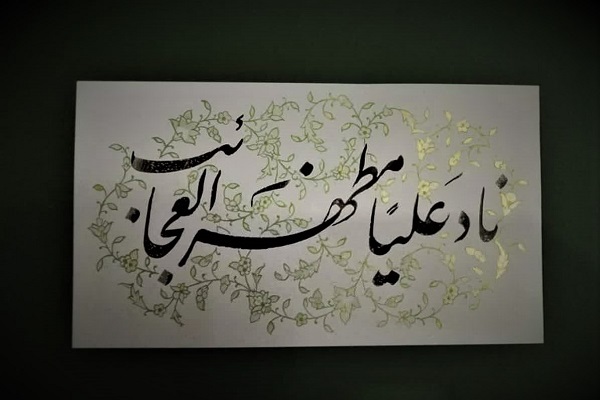 ناد علیاً مظهر العجائب